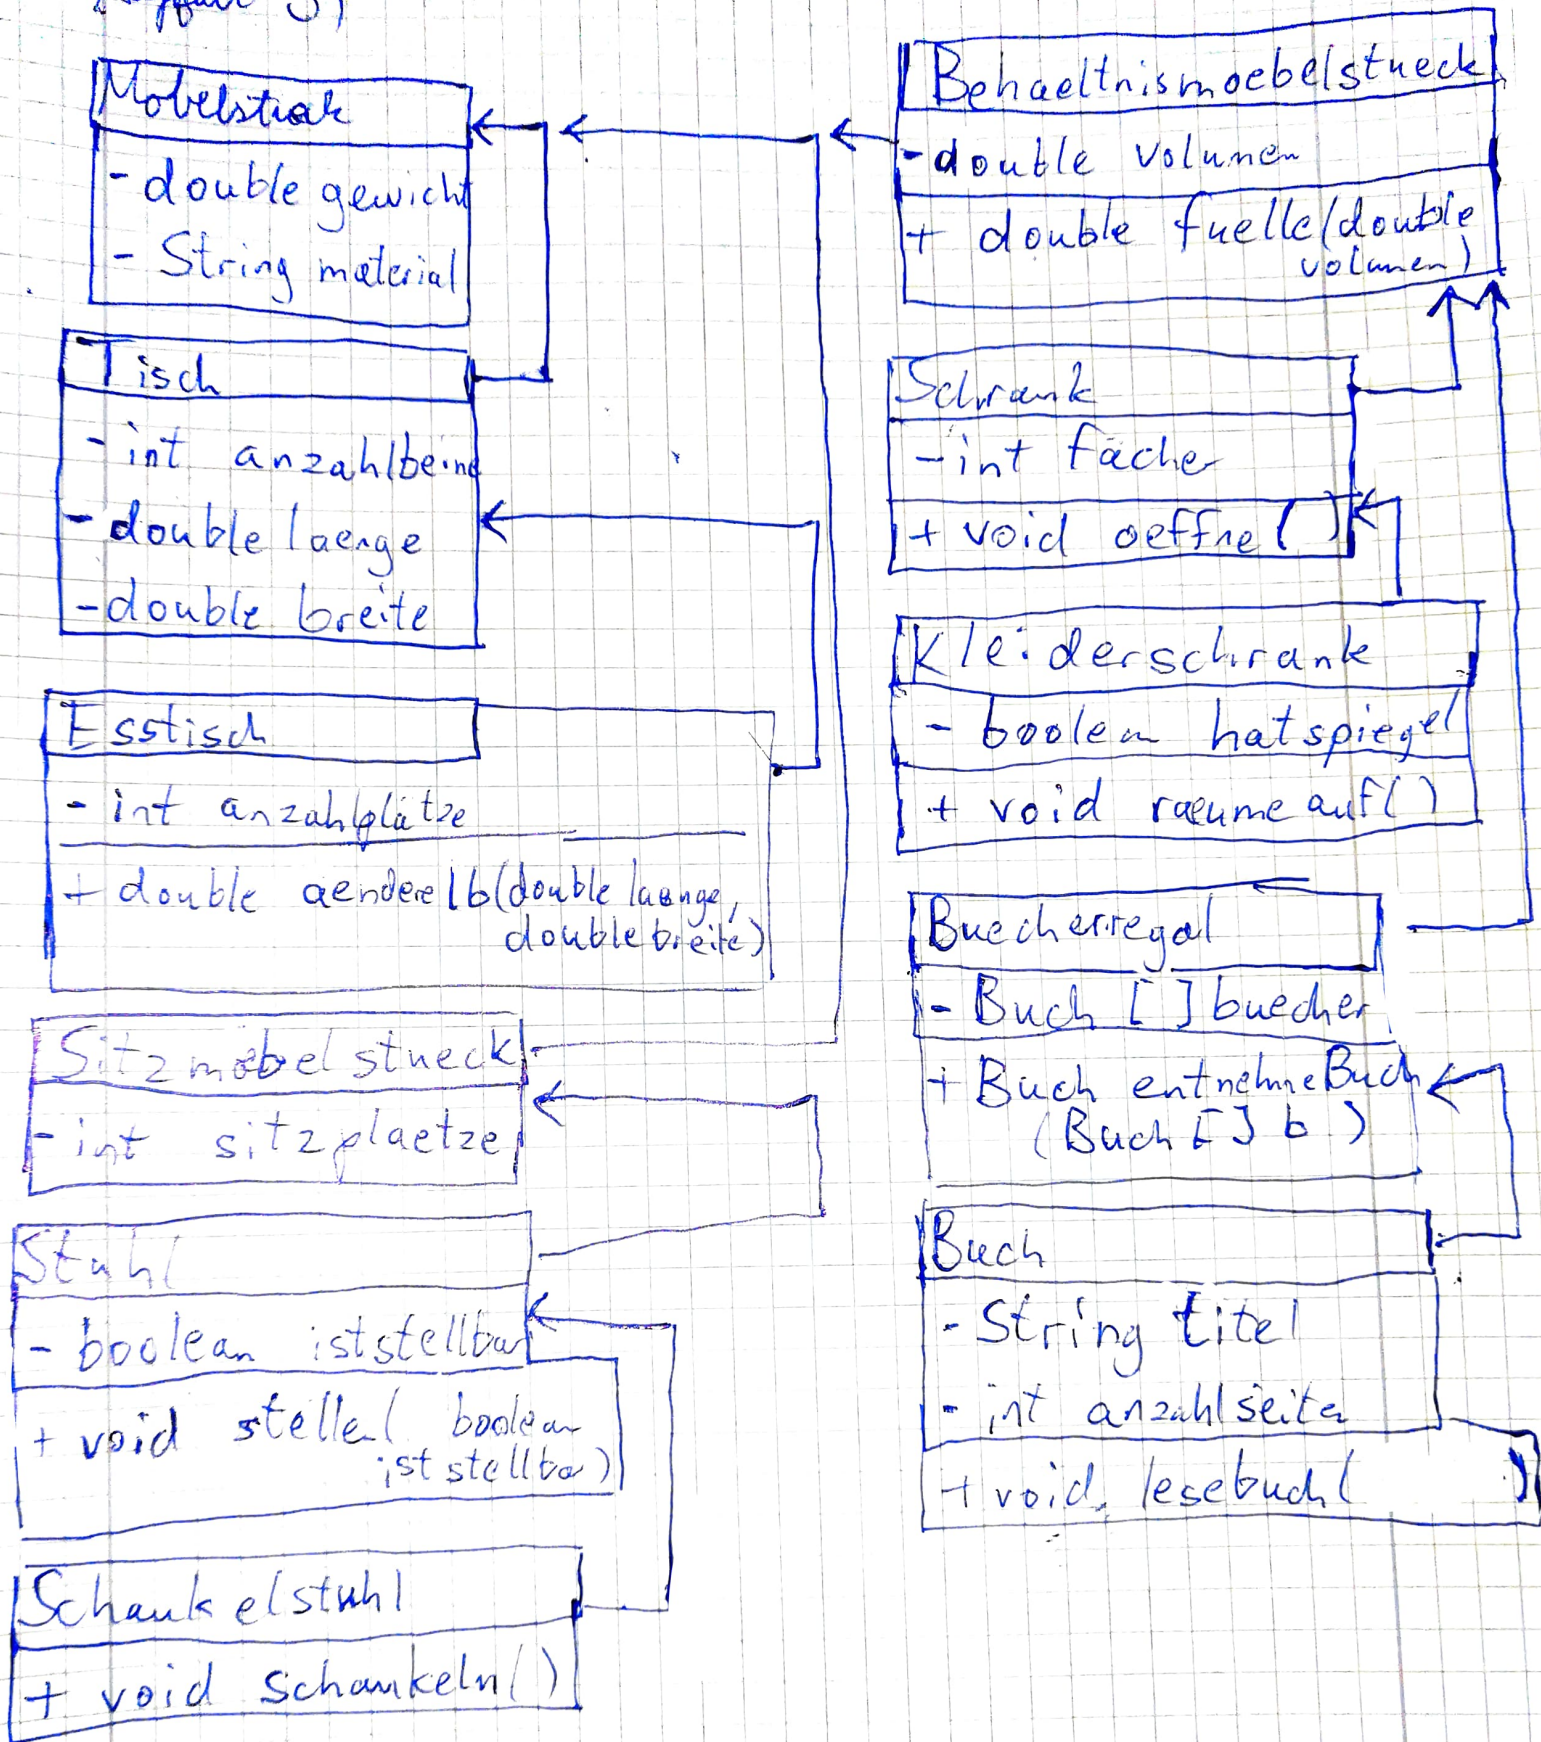 Möbelstück
- double gewicht
- String material
Tisch
- int anzahlbeine
- double laenge
- double breite
Esstisch
- int anzahlplätze
+ double aendere lb(double laenge,
double breite)
Sitzmoebelstueck
- int sitzplaetze
Stuhl
- boolean iststellbar
+ void stelle( boolean
iststellba)
Schaukelstuhl
+ void schaukeln()
Behaeltnismoebelstueck
- double volumen
+ double fuelle(double
volumen)
Schrank
- int fächer
+ void oeffne( )
Kleiderschrank
- boolean hatspiegel
+ void raeume auf()
Buecherregal
- Buch [ ] buecher
+ Buch entnehmeBuch
(Buch [ ] b )
Buch
- String titel
- int anzahlseiten
+ void lesebuch( )